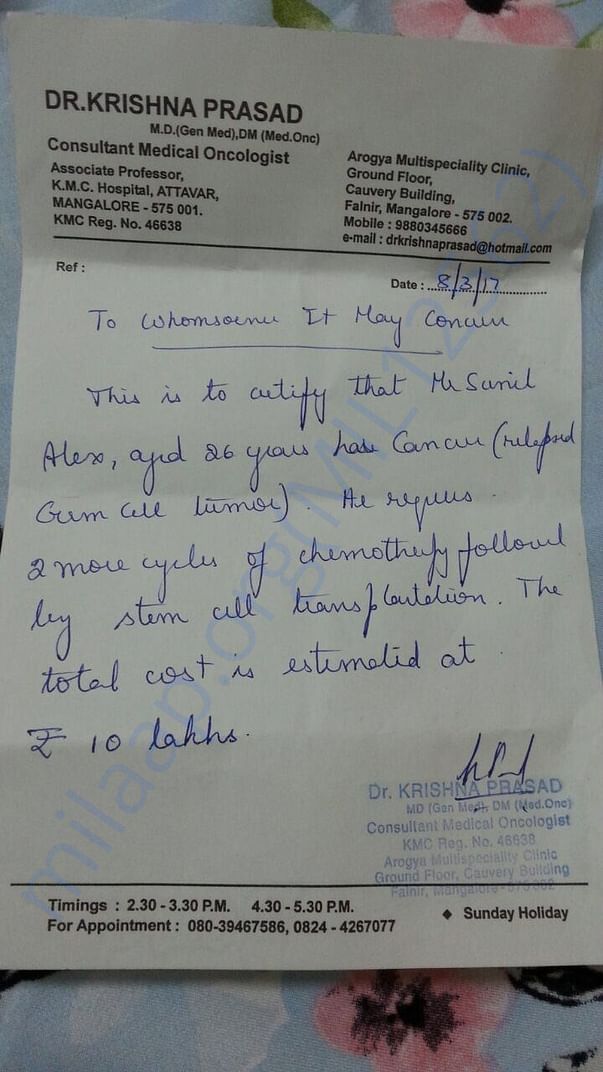 DR.KRISHNA PRASAD
M.D.(Gen Med),DM (Med.Onc)
Consultant Medical Oncologist
Associate Professor,
K.M.C. Hospital, ATTAVAR,
MANGALORE - 575 001.
KMC Reg. No. 46638
Arogya Multispeciality Clinic,
Ground Floor,
Cauvery Building,
Falnir, Mangalore - 575 002.
Mobile : 9880345666
e-mail : drkrishnaprasad@hotmail.com
Ref :
Date : 8/3/17
To Whomsoever It May Concern
This is to certify that Mr Sunil
Alex, aged 26 years has Cancer (relapsed
Germ cell tumor). He requires
2 more cycles of chemotherapy followed
by stem cell transplantation. The
total cost is estimated at
₹ 10 lakhs.
Dr. KRISHNA PRASAD
MD (Gen Med), DM (Med.Onc)
Consultant Medical Oncologist
KMC Reg. No. 46638
Arogya Multispeciality Clinic
Ground Floor, Cauvery Building
Falnir, Mangalore - 575 002
Timings : 2.30 - 3.30 P.M. 4.30 - 5.30 P.M.
◆ Sunday Holiday
For Appointment : 080-39467586, 0824 - 4267077